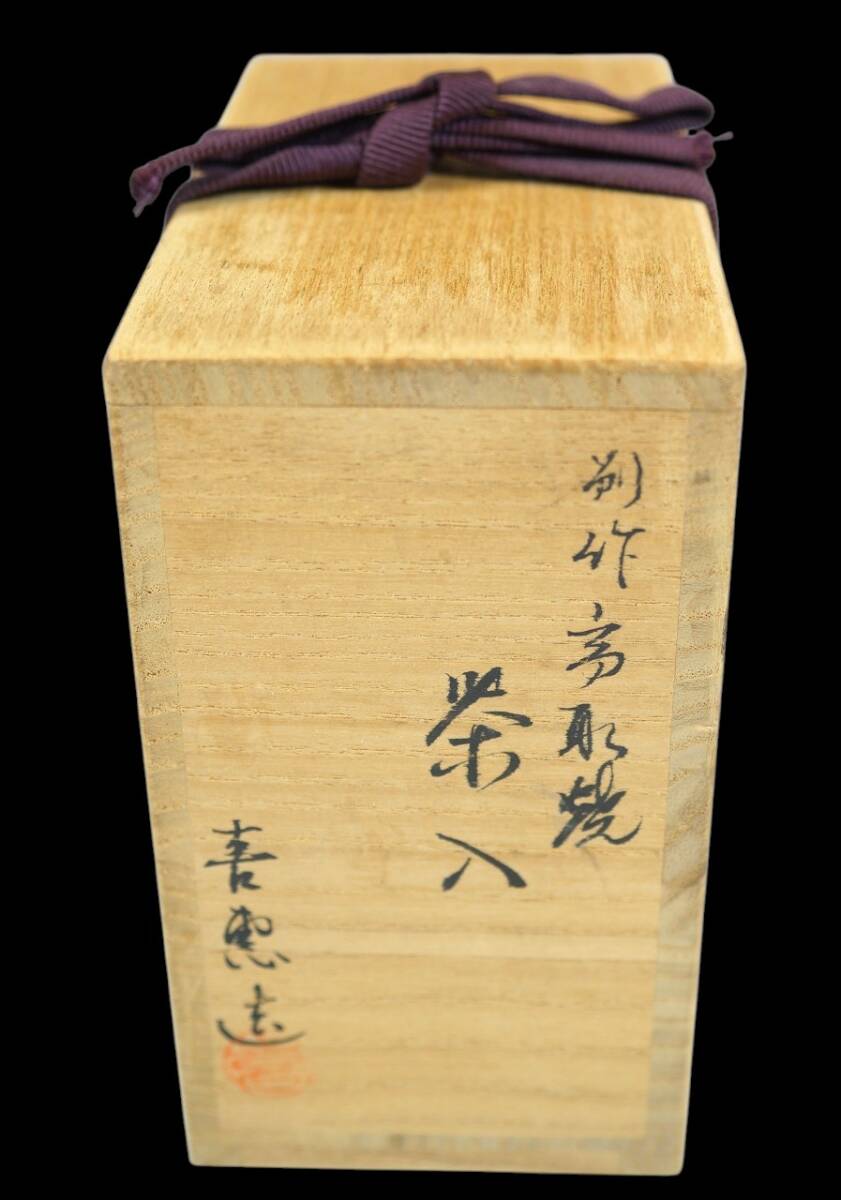 別作高取焼
茶入
喜恵造